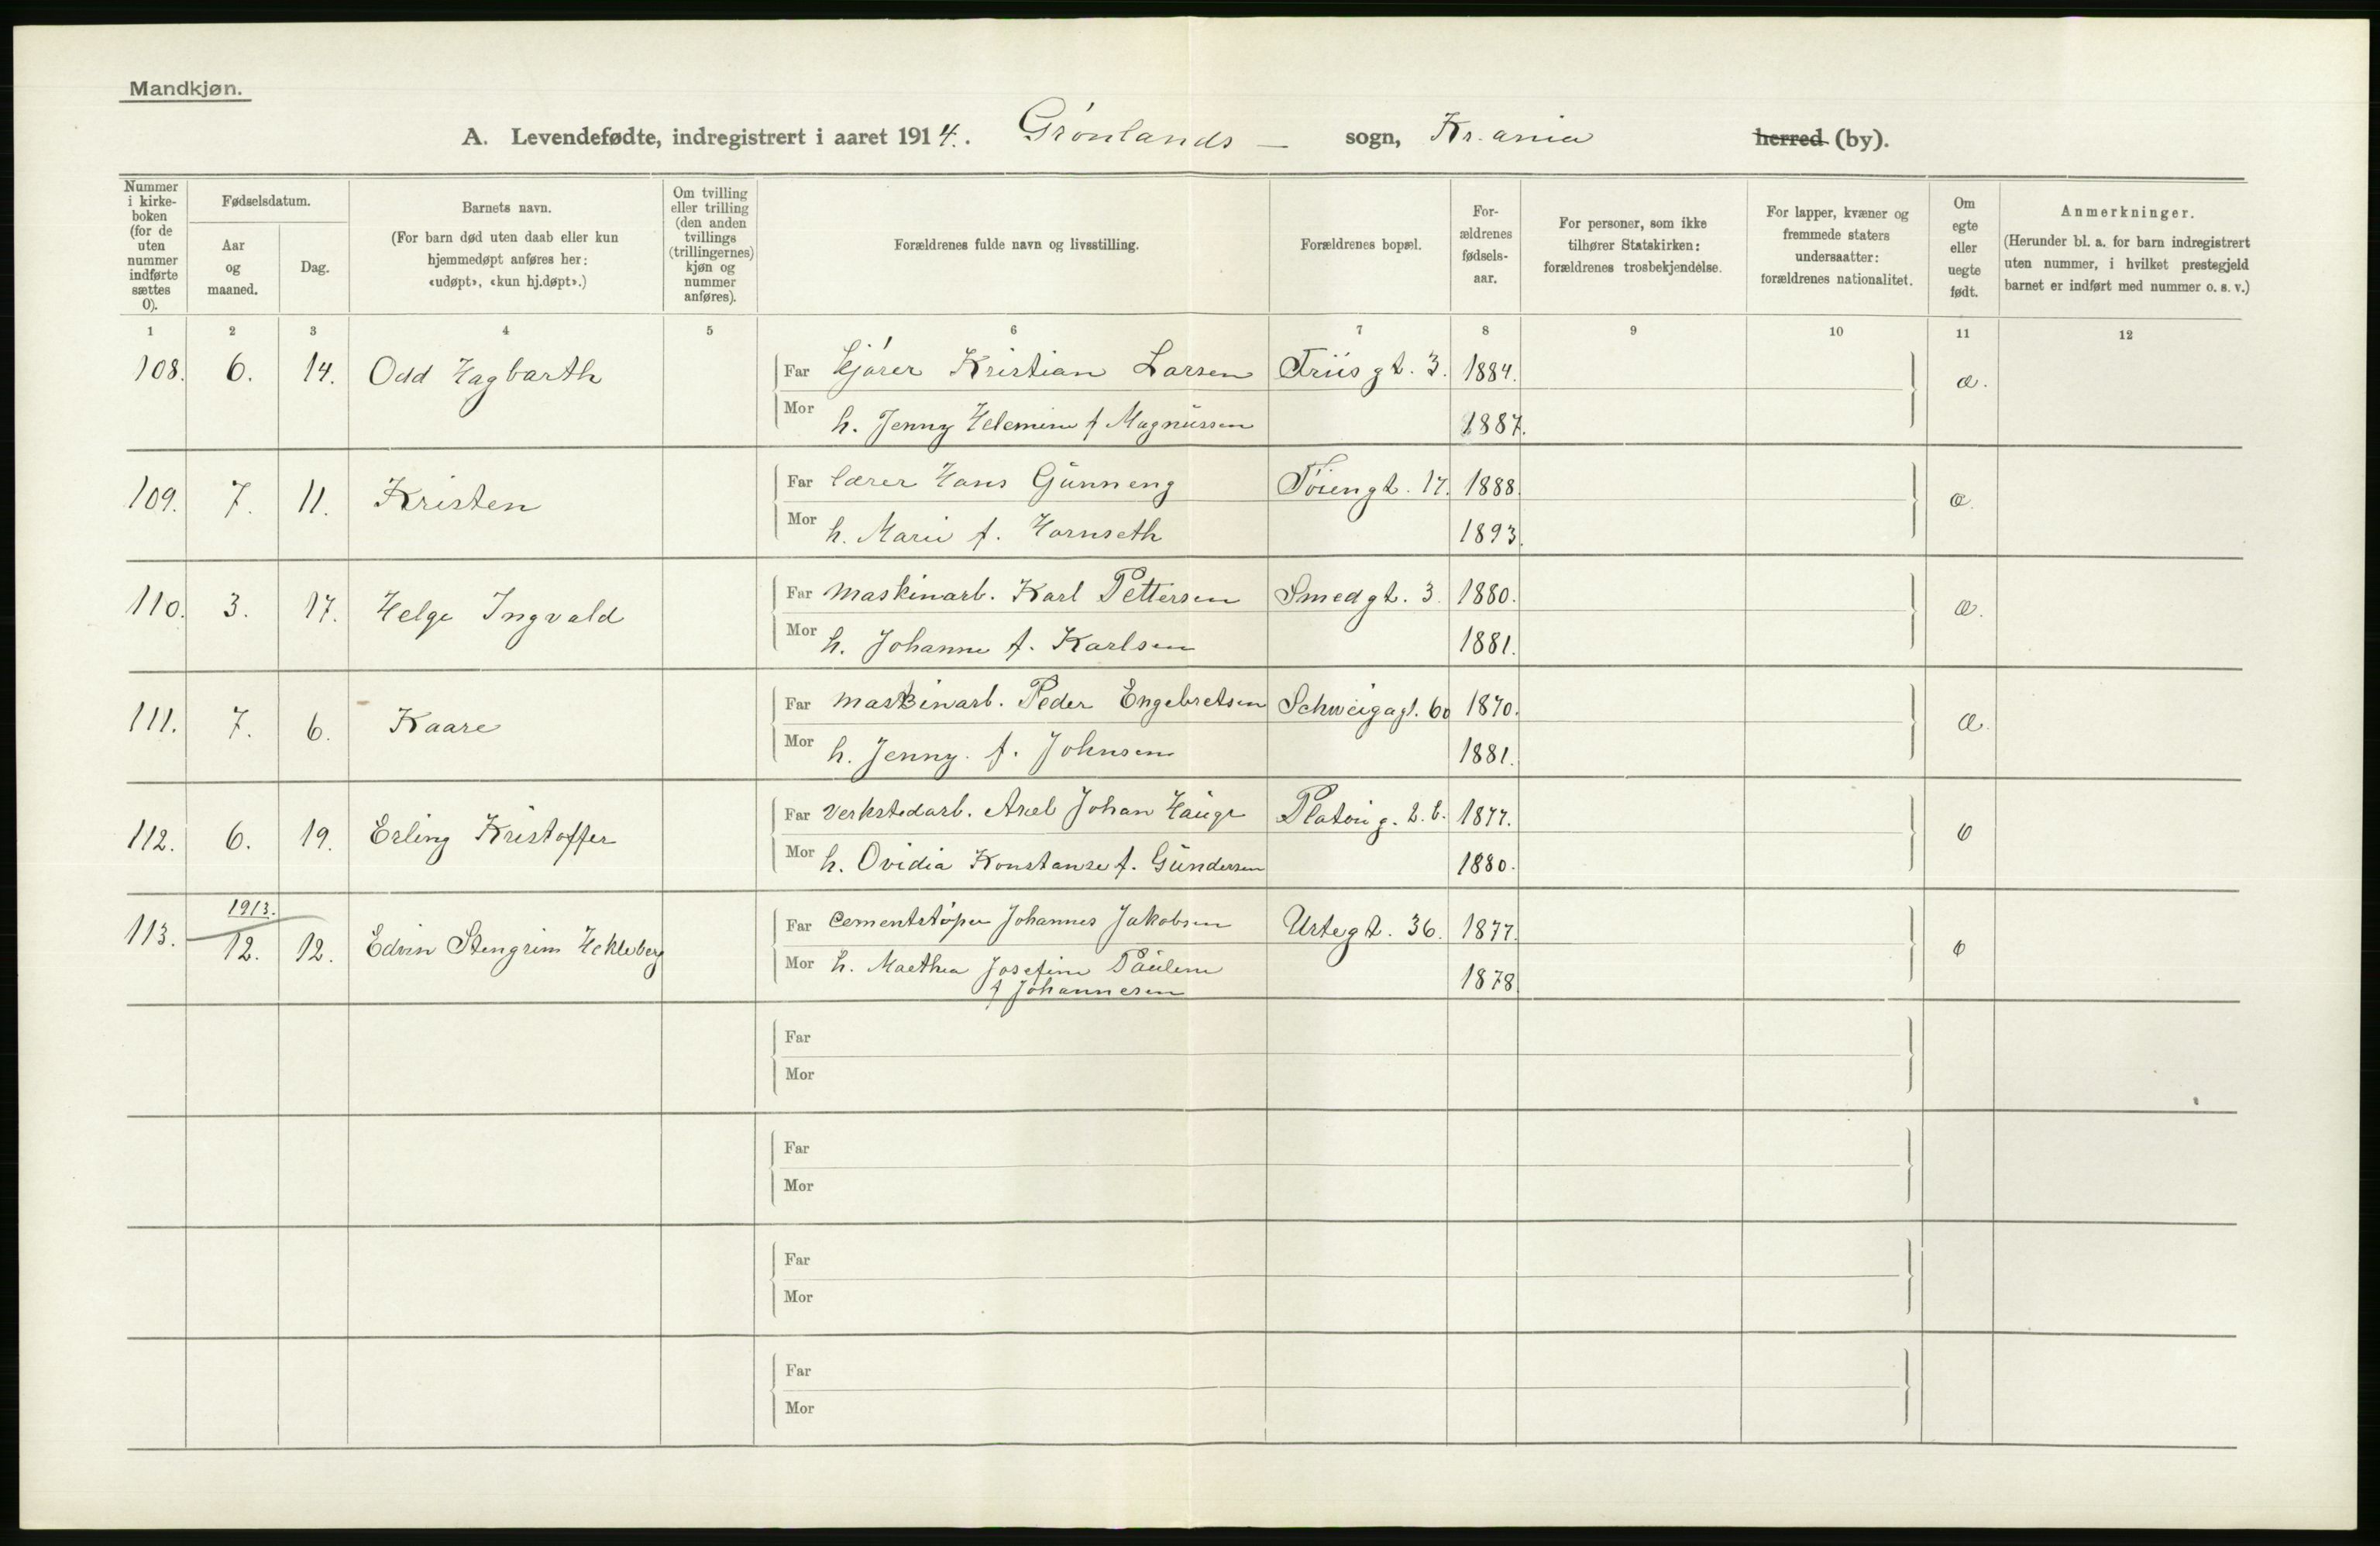 Mandkjøn.
A. Levendefødte, indregistrert i aaret 1914. Grønlands - sogn, Kr.ania herred (by).
Nummer i kirkeboken (for de uten nummer indførte sættes 0).
Fødselsdatum.
Aar og maaned.
Dag.
Barnets navn.
(For barn død uten daab eller kun hjemmedøpt anføres her: «udøpt», «kun hj.døpt».)
Om tvilling eller trilling (den anden tvillings (trillingernes) kjøn og nummer anføres).
Forældrenes fulde navn og livsstilling.
Forældrenes bopæl.
For-ældrenes fødsels-aar.
For personer, som ikke tilhører Statskirken: forældrenes trosbekjendelse.
For lapper, kvæner og fremmede staters undersaatter: forældrenes nationalitet.
Om egte eller uegte født.
Anmerkninger.
(Herunder bl. a. for barn indregistrert uten nummer, i hvilket prestegjeld barnet er indført med nummer o. s. v.)
1 2 3 4 5 6 7 8 9 10 11 12
108. 6. 14. Odd Hagbarth Far kjører Kristian Larsen Friisgt. 3. 1884. æ.
Mor h. Jenny Helemine f Magnussen 1887.
109. 7. 11. Kristen Far lærer Hans Gunneng Tøiengt. 17. 1888. æ.
Mor h. Marie f. Hornseth 1893.
110. 3. 17. Helge Ingvald Far maskinarb. Karl Pettersen Smedgt. 3. 1880. æ.
Mor h. Johanne f. Karlsen 1881.
111. 7. 6. Kaare Far maskinarb. Peder Engebretsen Schweigagt. 60 1870. æ.
Mor h. Jenny. f. Johnsen 1881.
112. 6. 19. Erling Kristoffer Far verkstedarb. Axel Johan Hauge Platoug. 2.b. 1877.
Mor h. Ovidia Konstanse f. Gundersen 1880.
1913.
113. 12. 12. Edvin Stengrim Hekleberg Far cementstøper Johannes Jakobsen Urtegt. 36. 1877.
Mor h. Maethea Josefine Pauline 1878.
f Johannesen
Far
Mor
Far
Mor
Far
Mor
Far
Mor